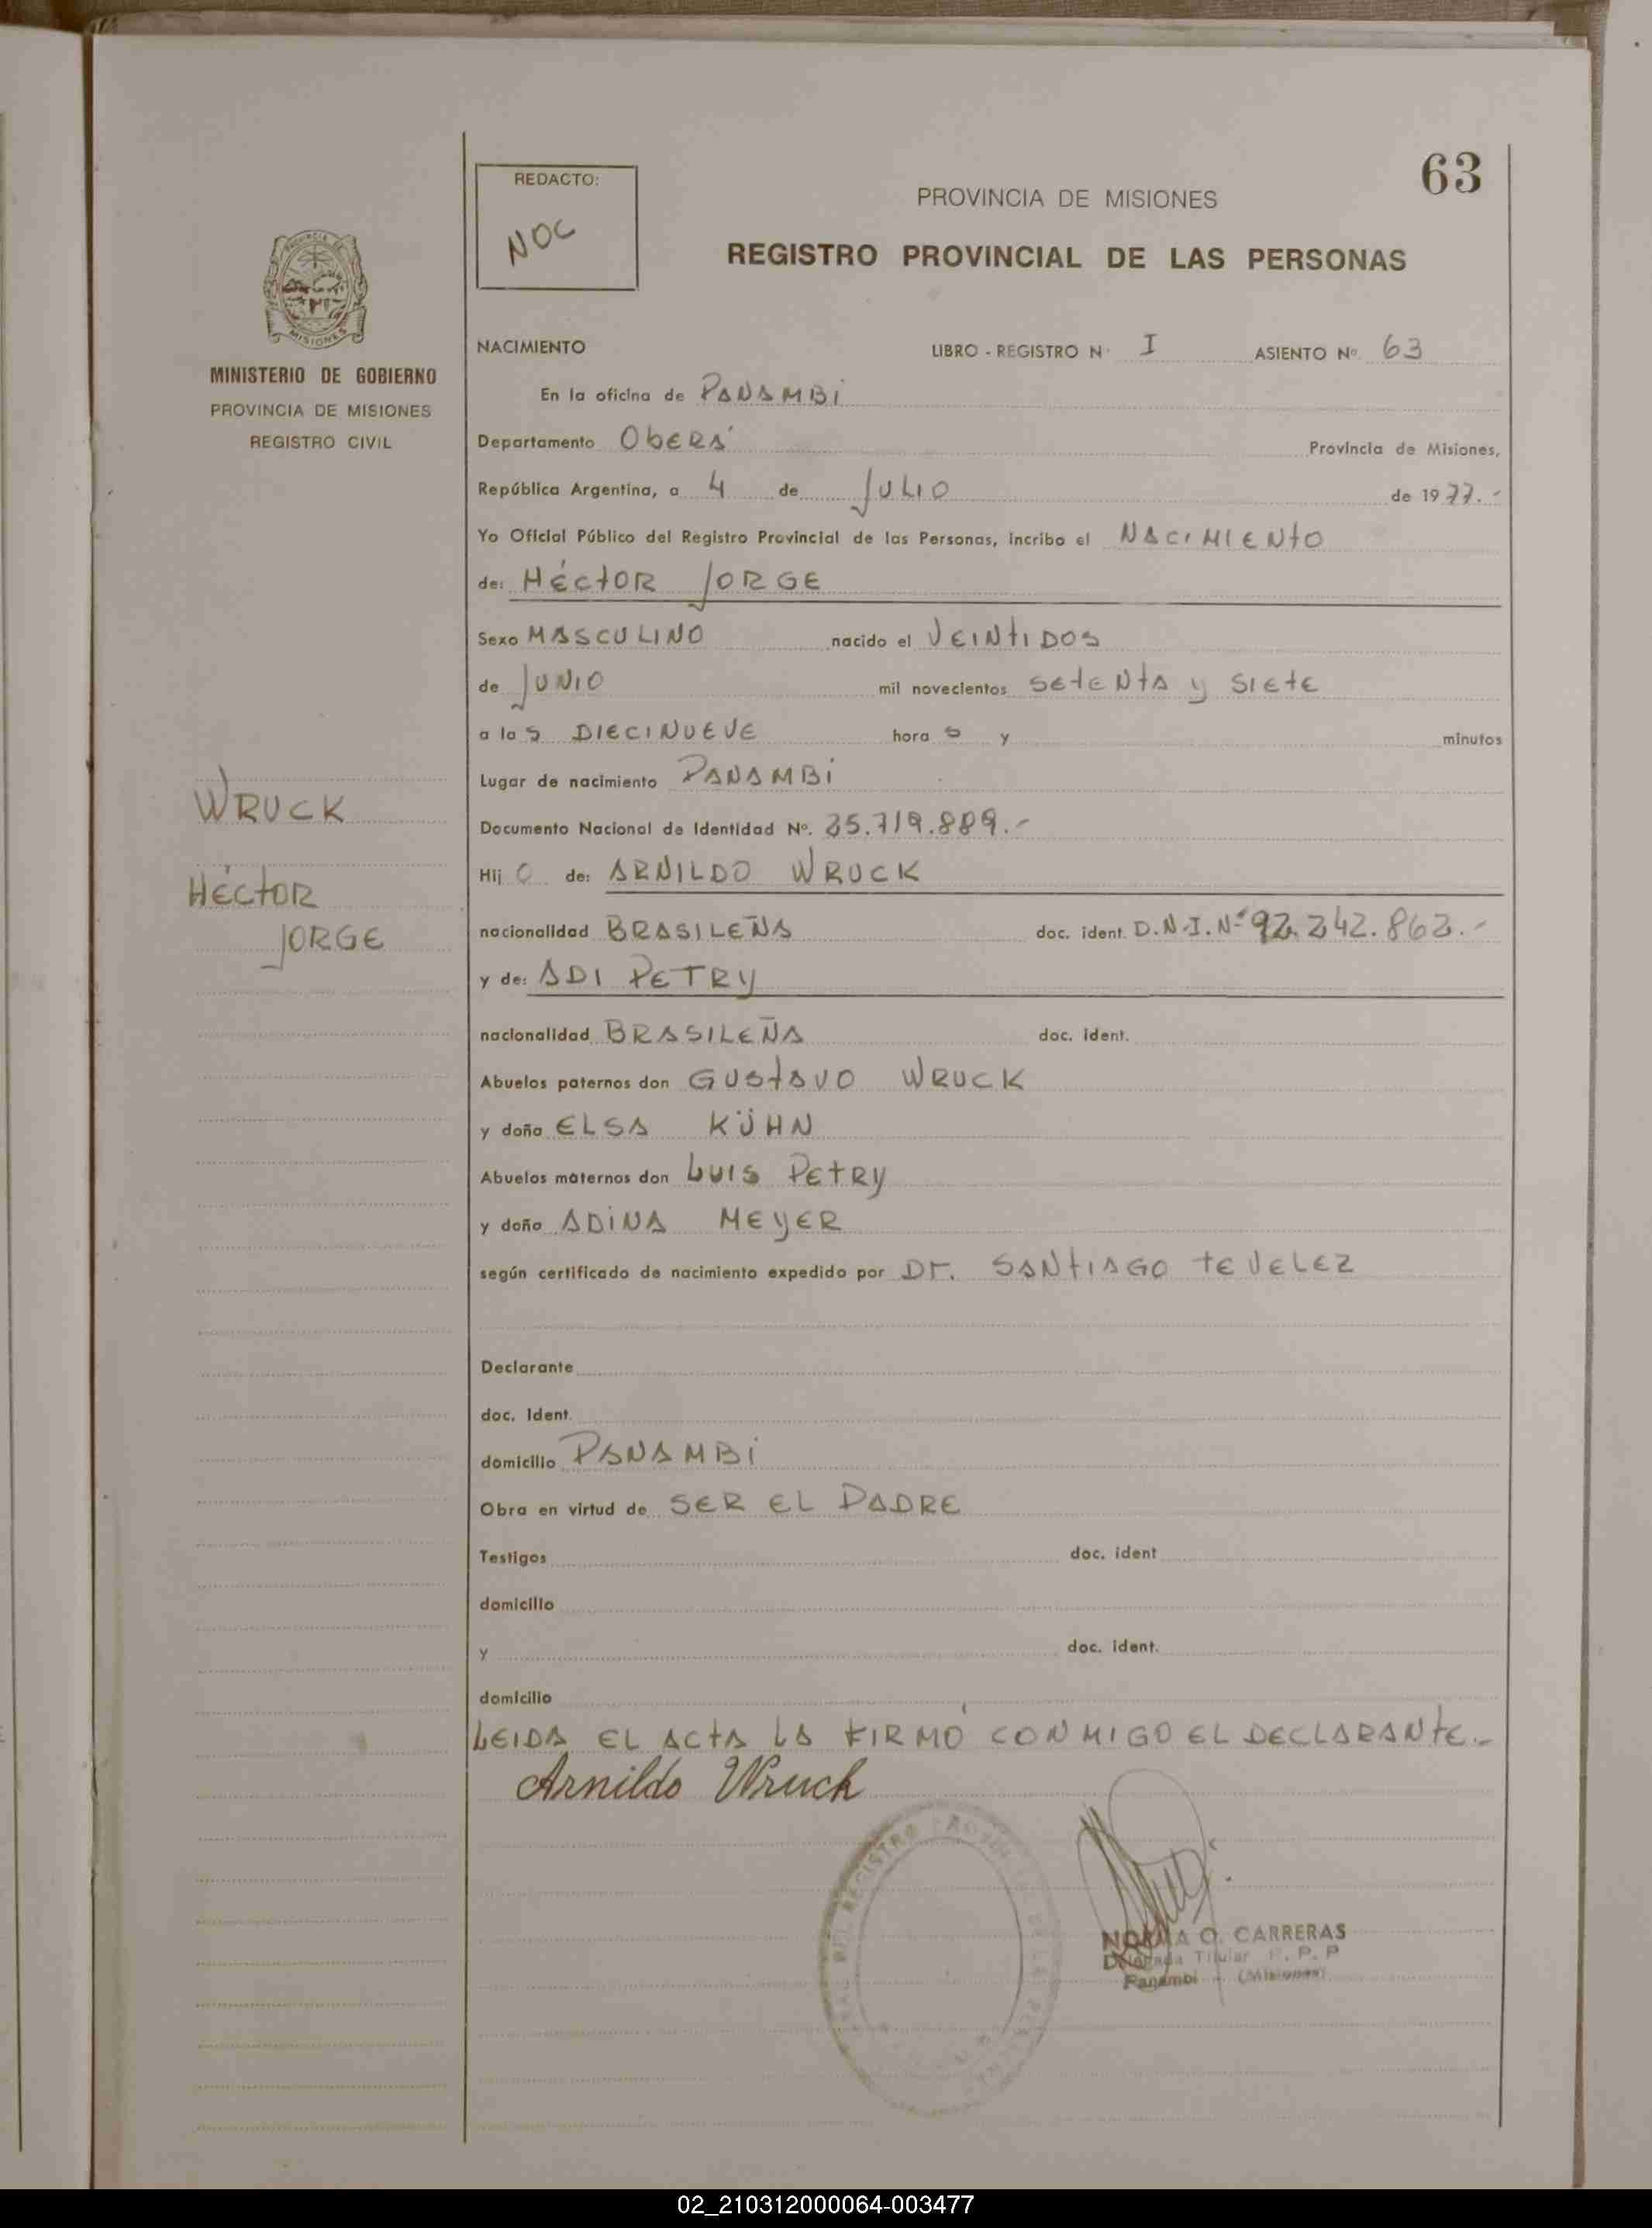 63
REDACTO:
NOC
PROVINCIA DE MISIONES
REGISTRO PROVINCIAL DE LAS PERSONAS
MISIONES
MINISTERIO DE GOBIERNO
PROVINCIA DE MISIONES
REGISTRO CIVIL
NACIMIENTO LIBRO - REGISTRO N° I ASIENTO Nº 63
En la oficina de PANAMBÍ
Departamento OBERÁ Provincia de Misiones,
República Argentina, a 4 de JULIO de 1977.-
Yo Oficial Público del Registro Provincial de las Personas, incribo el NACIMIENTO
de: HÉCTOR JORGE
Sexo MASCULINO nacido el VEINTIDOS
de JUNIO mil novecientos SETENTA y SIETE
a las DIECINUEVE horas y minutos
Lugar de nacimiento PANAMBÍ
WRUCK
HÉCTOR
JORGE
Documento Nacional de Identidad Nº. 25.719.889.-
Hijo de: ARNILDO WRUCK
nacionalidad BRASILEÑA doc. ident. D.N.I. Nº 92.242.862.-
y de: ADI PETRY
nacionalidad BRASILEÑA doc. ident.
Abuelos paternos don GUSTAVO WRUCK
y doña ELSA KÜHN
Abuelos maternos don LUIS PETRY
y doña ADINA MEYER
según certificado de nacimiento expedido por Dr. SANTIAGO TEVELEZ
Declarante
doc. ident.
domicilio PANAMBÍ
Obra en virtud de SER EL PADRE
Testigos doc. ident
domicilio
y doc. ident.
domicilio
LEIDA EL ACTA LA FIRMÓ CONMIGO EL DECLARANTE.-
Arnildo Wruck
NORMA O. CARRERAS
Delegada Titular R.P.P
Panambí - (Misiones)
02_210312000064-003477